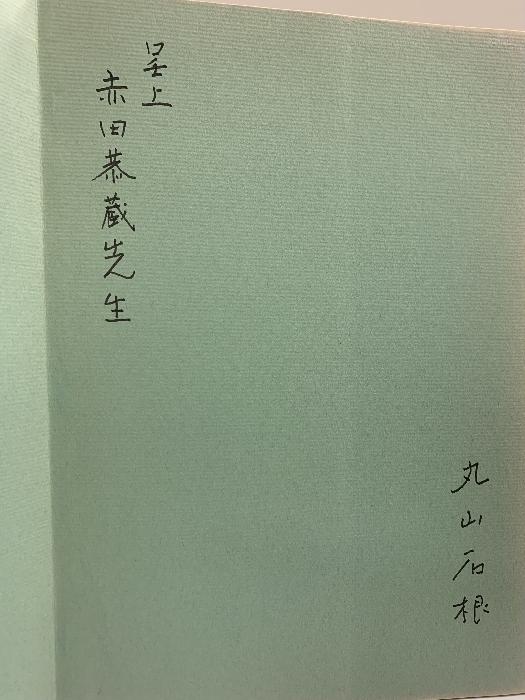 呈上
赤田恭蔵先生
丸山石根